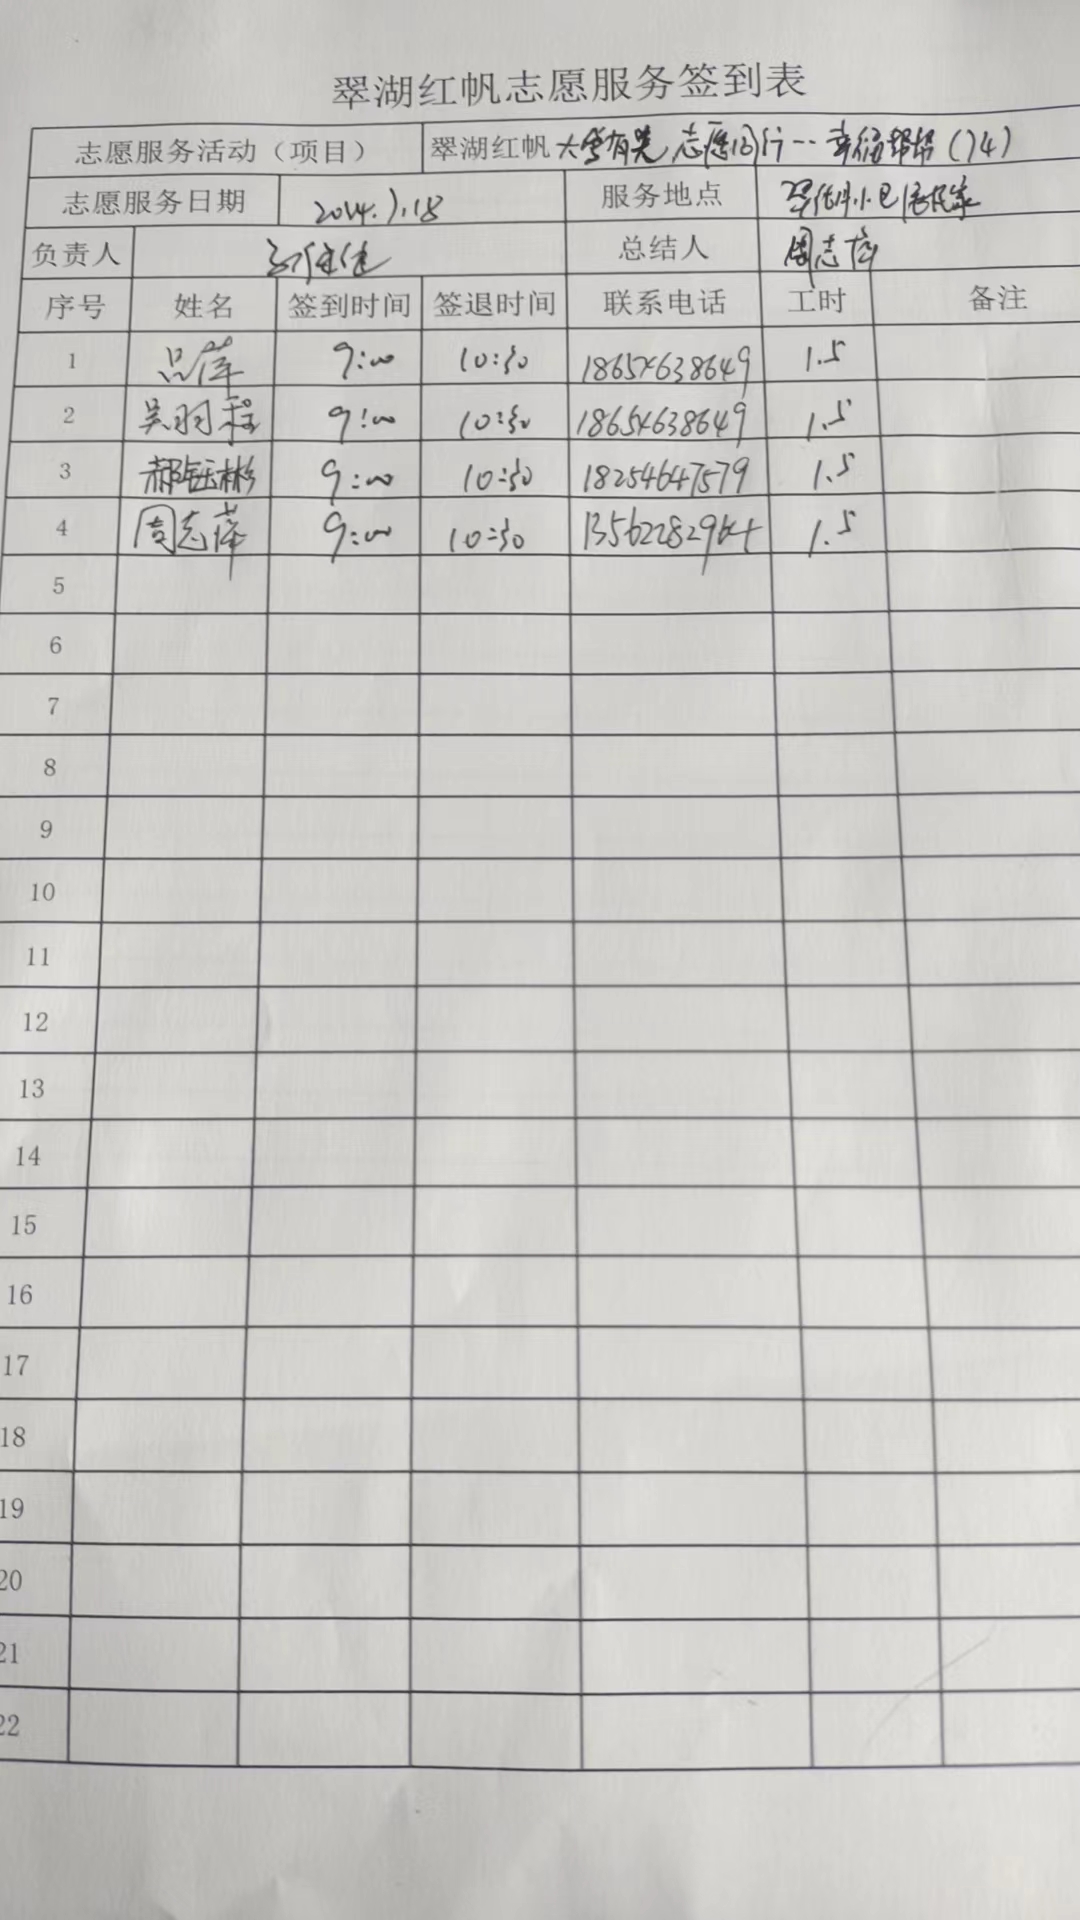 翠湖红帆志愿服务签到表
志愿服务活动（项目） 翠湖红帆大爱有光 志愿同行 幸福帮帮（74）
志愿服务日期 2024.7.18 服务地点
负责人 总结人 周志萍
序号 姓名 签到时间 签退时间 联系电话 工时 备注
1 吕萍 9:00 10:30 18654638649 1.5
2 吴羽程 9:00 10:30 18654638649 1.5
3 郝钰彬 9:00 10:30 18254647579 1.5
4 周志萍 9:00 10:30 13562282964 1.5
5
6
7
8
9
10
11
12
13
14
15
16
17
18
19
20
21
22